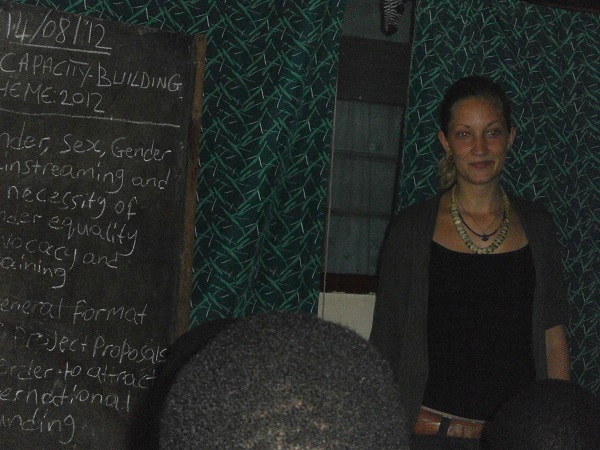 14/08/12
CAPACITY-BUILDING
HEME.2012
nder, Sex, Gender
instreaming and
necessity of
nder equality
vocacy and
aining
eneral format
Project Proposals
order to attract
ernational
unding